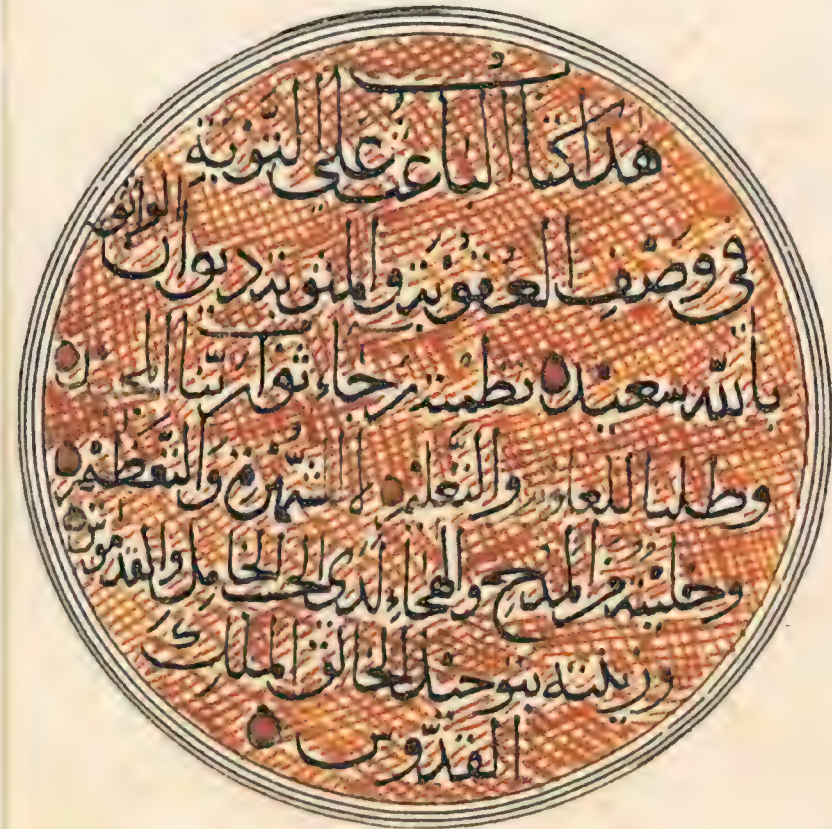 هذا كتاب الباعث على التوبة
في وصف العقوبة والمثوبة ديوان الواثق
بالله سعيد نظمته رجاء ثواب ربنا الجليل
وطلبا للتعاون والتعليم لا للشهرة والتعظيم
وخليته من المدح والهجاء لدى الخامل والقدموس
وزينته بتوحيد الخالق الملك
القدوس